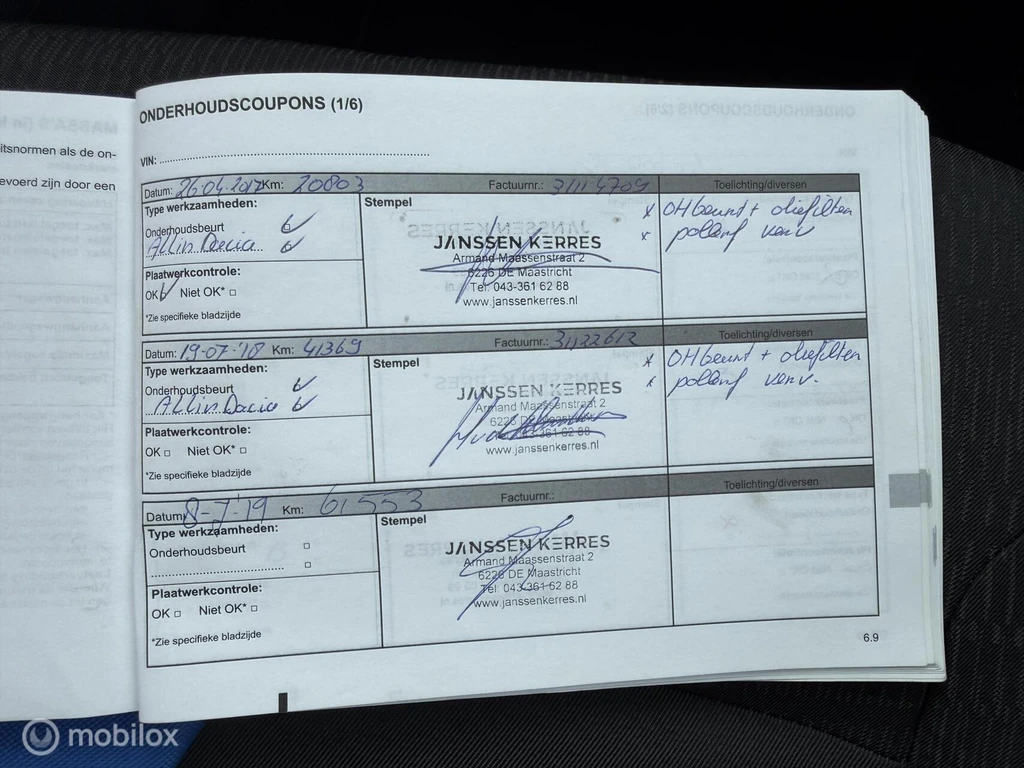 ONDERHOUDSCOUPONS (1/6)
itsnormen als de on-
evoerd zijn door een
VIN:
Datum: 26-04-2017 Km: 20803 Factuurnr.: 31114709 Toelichting/diversen
Type werkzaamheden:
Onderhoudsbeurt
All in Dacia
Plaatwerkcontrole:
OK Niet OK*
*Zie specifieke bladzijde
Stempel
JANSSEN KERRES
Armand Maassenstraat 2
6226 DE Maastricht
Tel: 043-361 62 88
www.janssenkerres.nl
x OH beurt + oliefilter
x pollenf verv
Datum: 19-07-'18 Km: 41369 Factuurnr.: 31122612 Toelichting/diversen
Type werkzaamheden:
Onderhoudsbeurt
All in Dacia
Plaatwerkcontrole:
OK Niet OK*
*Zie specifieke bladzijde
Stempel
JANSSEN KERRES
Armand Maassenstraat 2
6226 DE
361 62 88
www.janssenkerres.nl
x OH beurt + oliefilter
x pollenf verv.
Datum: 8-7-'19 Km: 61553 Factuurnr.: Toelichting/diversen
Type werkzaamheden:
Onderhoudsbeurt
Plaatwerkcontrole:
OK Niet OK*
*Zie specifieke bladzijde
Stempel
JANSSEN KERRES
Armand Maassenstraat 2
6226 DE Maastricht
Tel: 043-361 62 88
www.janssenkerres.nl
6.9
mobilox